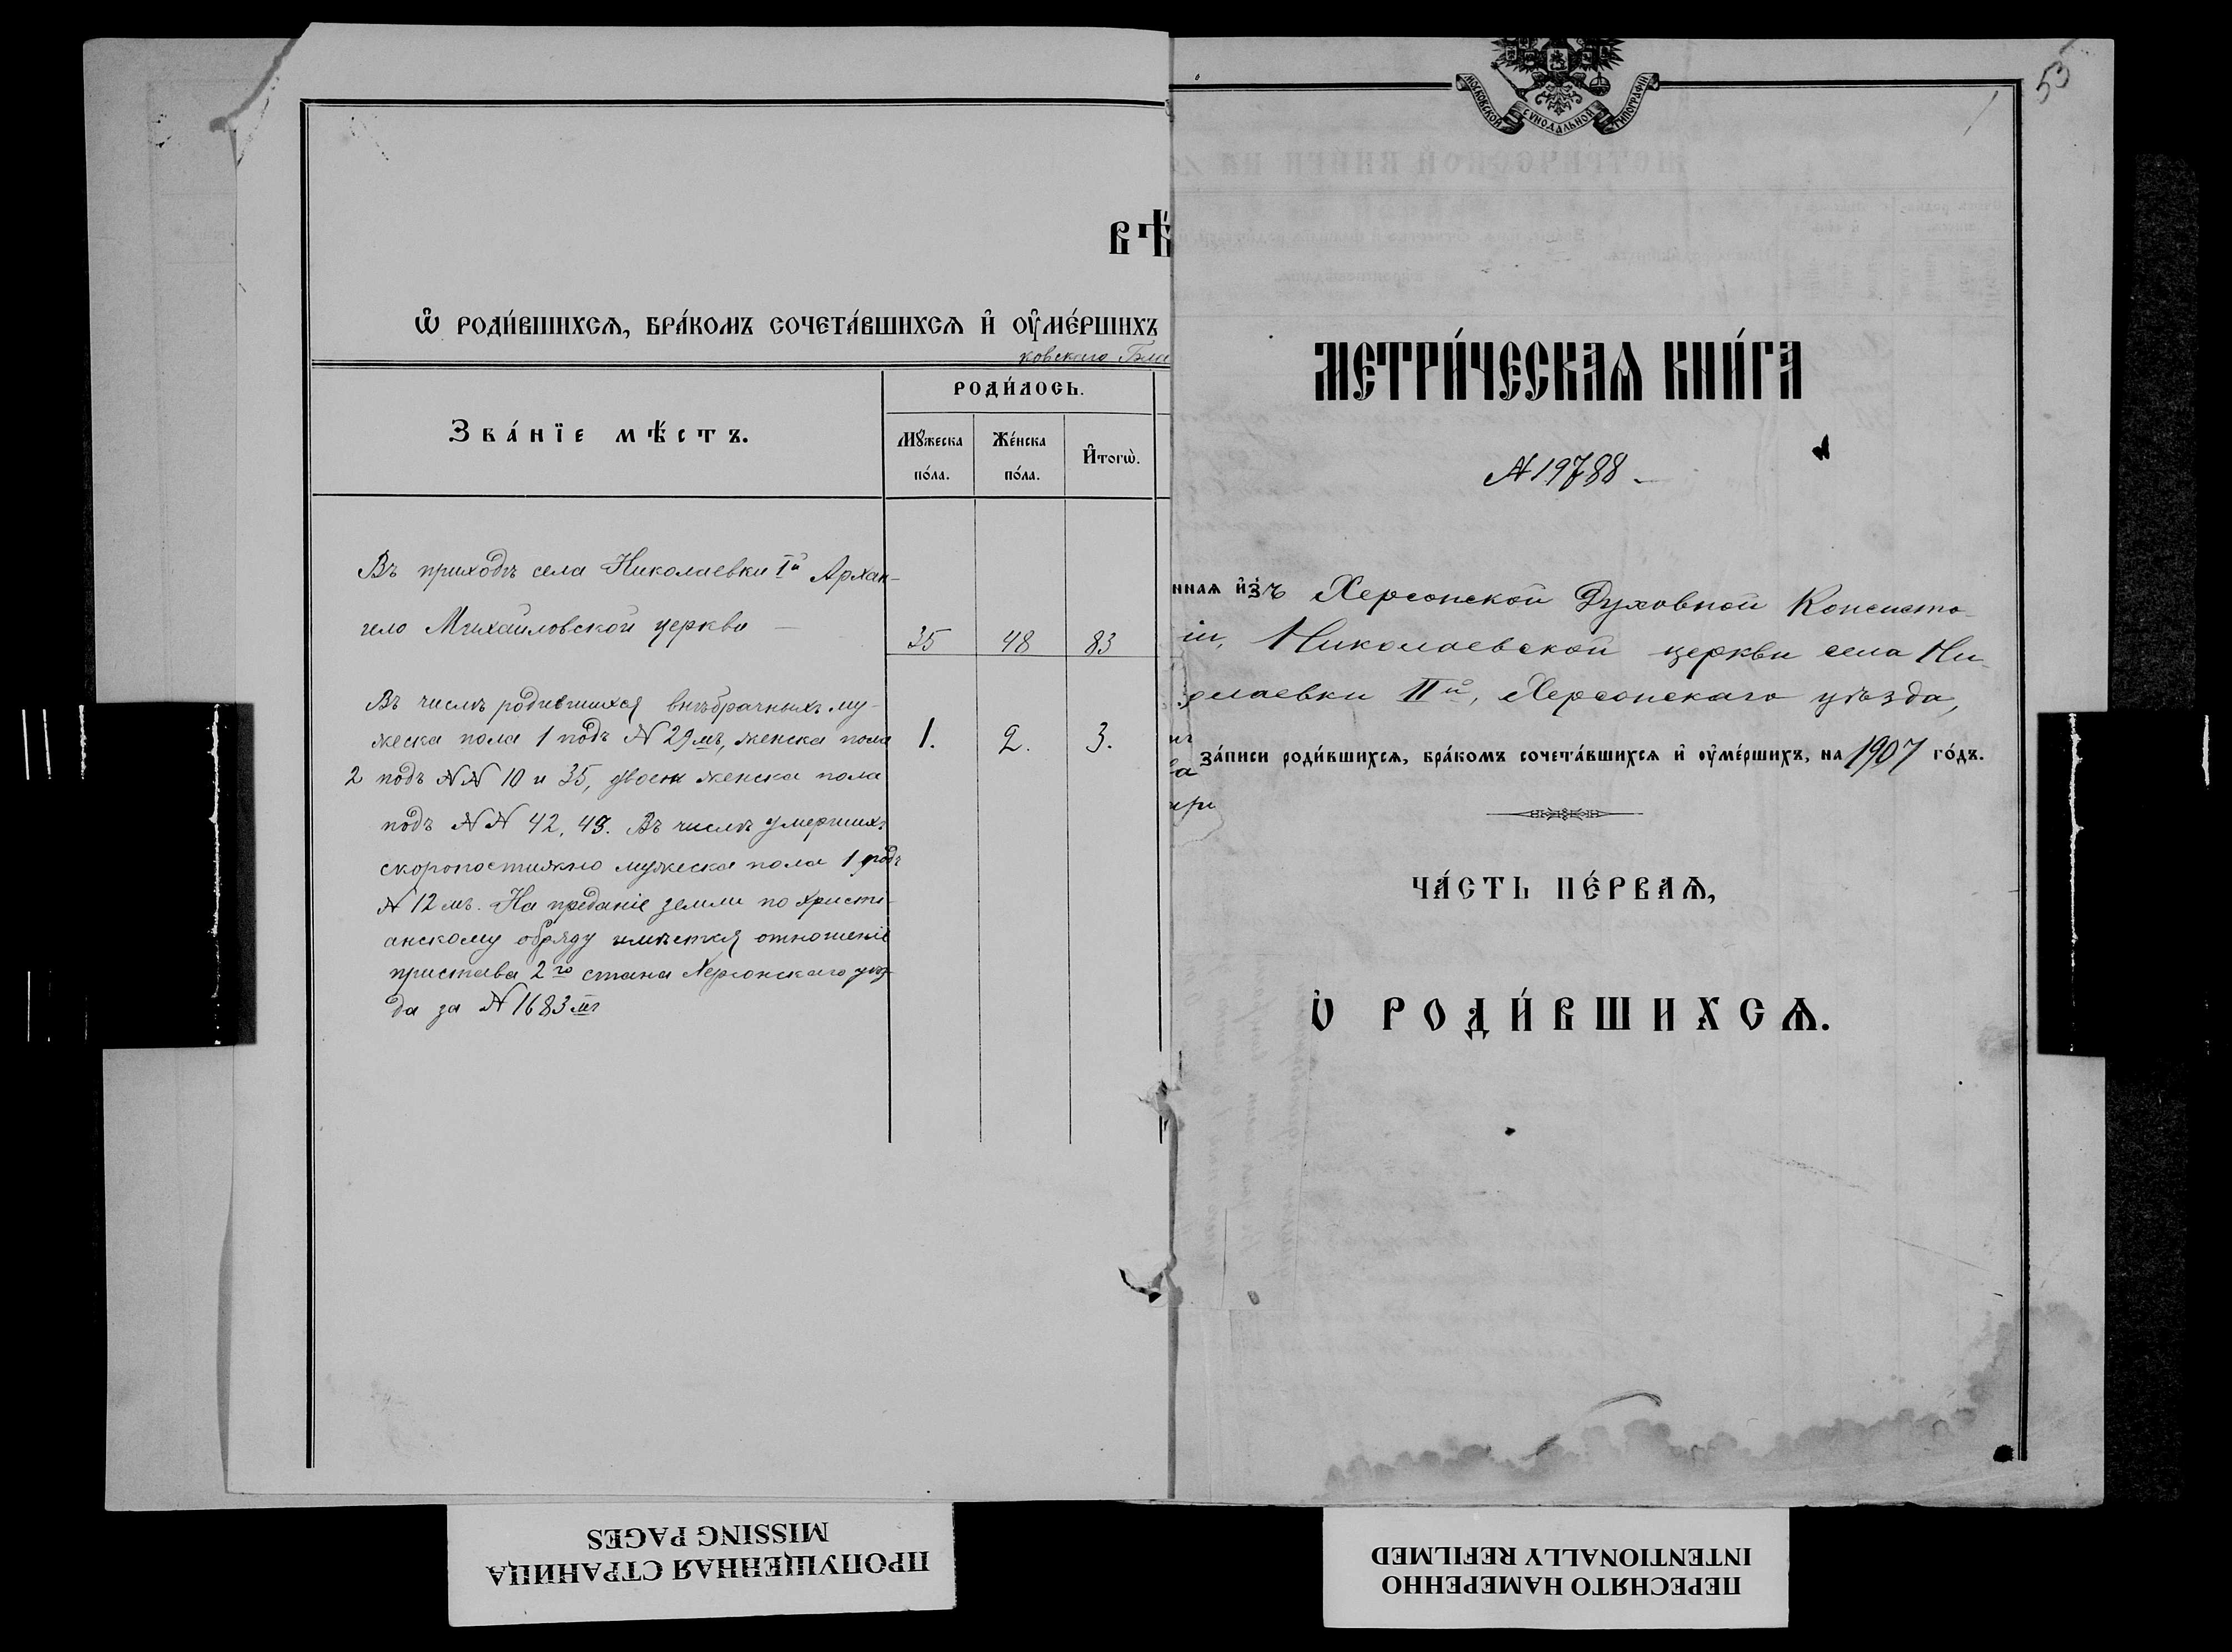 вѣ
Ѡ҆ роди́вшихсѧ, бра́комъ сочета́вшихсѧ и҆ оу҆ме́ршихъ
ковскаго Бла
Зва́нїе мѣ́стъ.
роди́лось.
Мꙋ́жеска по́ла.
Же́нска по́ла.
И҆тогѡ̀.
Въ приходѣ села Николаевки Iй Архан-
гело Михайловской церкви — 35 48 83
Въ числѣ родившихся внѣбрачныхъ му-
жеска пола 1 подъ № 29мъ, женска пола 1. 2. 3.
2 подъ №№ 10 и 35, двоен женска пола
подъ №№ 42, 43. Въ числѣ умершихъ
скоропостижно мужеска пола 1 подъ
№ 12мъ. На преданіе земли по христі-
анскому обряду имѣется отношеніе
пристава 2го стана Херсонскаго уѣз-
да за № 1683мъ
53
московской сѵнодальной типографіи
метри́ческаѧ кни́га
№ 19788
ннаѧ и҆зъ Херсонской Духовной Консисто-
іи, Николаевской церкви села Ни-
олаевки IIй, Херсонскаго уѣзда,
за́писи роди́вшихсѧ, бра́комъ сочета́вшихсѧ и҆ оу҆ме́ршихъ, на 1907 го́дъ.
ча́сть пе́рваѧ,
Ѡ҆ роди́вшихсѧ.
ПРОПУЩЕННАЯ СТРАНИЦА
MISSING PAGES
ПЕРЕСНЯТО НАМЕРЕННО
INTENTIONALLY REFILMED